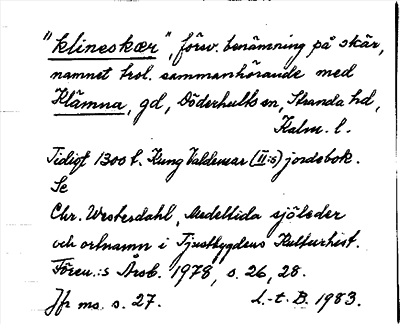 "klineskær", försv. benämning på skär,
namnet trol. sammanhörande med
Klämna, gd, Döderhults sn, Stranda hd,
Kalm. l.
Tidigt 1300 t. Kung Valdemar (II:s) jordebok.
Se
Chr. Westerdahl, Medeltida sjöleder
och ortnamn i Tjustbygdens Kulturhist.
Fören.:s Årsb. 1978, s. 26, 28.
Jfr ms. s. 27. L.-t. B. 1983.